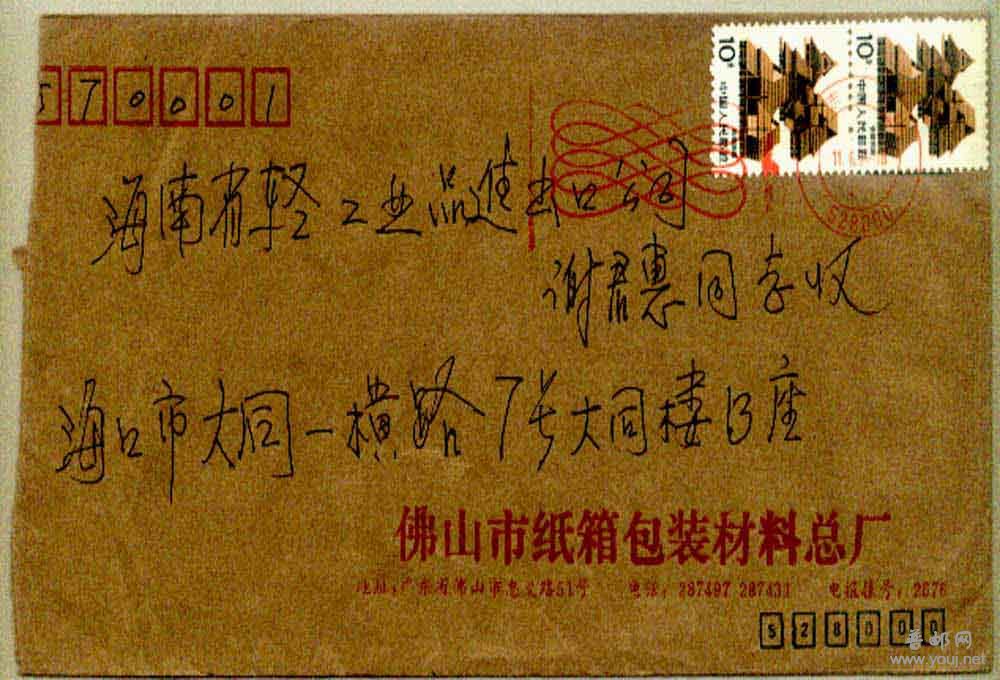 570001
10分 中国人民邮政
10分 中国人民邮政
海南省轻工业品进出口公司
谢君惠同志收
海口市大同一横路7号大同楼B座
佛山市纸箱包装材料总厂
地址:广东省佛山市 路51号 电话:287497 287431 电报挂号:2676
528000
普邮网
www.youj.net